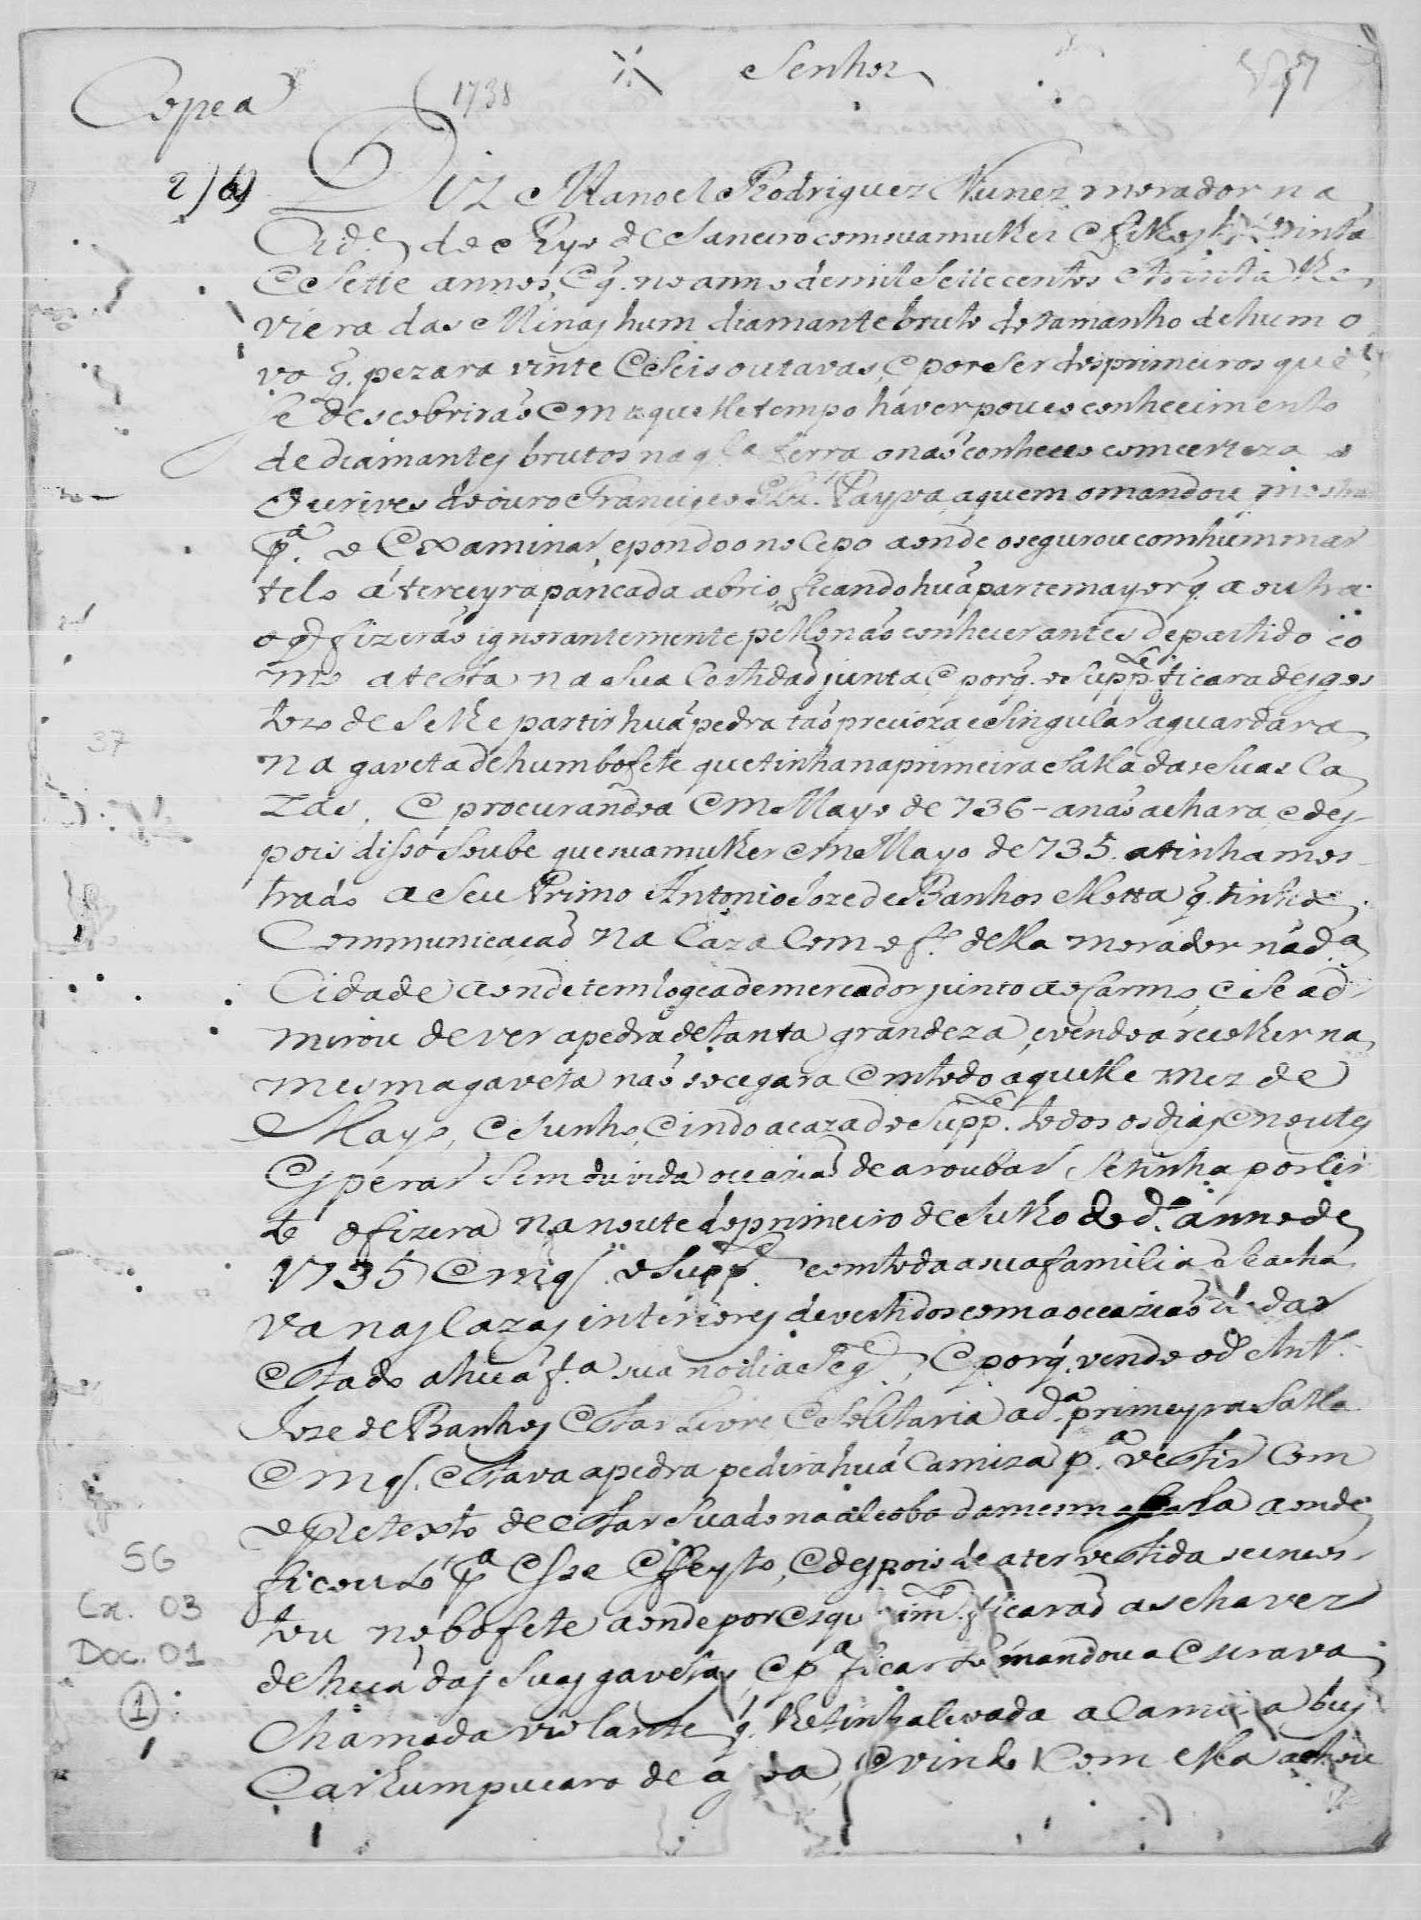 Senhor
Copea
1738
Diz Manoel Rodriguez Nunez morador na
Cid.e do Ryo de Janeiro com sua mulher e filhos vinta
e Sette annos, e q. no anno de mil Sette centos e trinta lhe
viera das Minas hum diamante bruto do tamanho de hum o
vo q. pezara vinte e Seis outavas, e por Ser dos primeiros que
se descobriraõ em aquelle tempo haver pouco conhecimento
de diamantes brutos naq.la terra o naõ conheceo com certeza o
Ourives do ouro Francisco Payva, aquem o mandou mostrar
p.a o Examinar, e pondo o no Cepo aonde o segurou com hum mar
telo á terceyra pancada abrio, ficando huã parte mayor q. a outra
o q. fizeraõ ignorantemente pello naõ conhecer antes de partido co
mo atesta na sua Certidaõ junta, e porq. o Supp.e ficara desgos
tozo de Se lhe partir huã pedra taõ precioza e Singular a guardara
na gaveta de hum bofete que tinha na primeira Salla das Suas Ca
zas, e procurandoa em Mayo de 736 - a naõ achara, e des
pois disso Soube que sua mulher em Mayo de 735. a tinha mos
trado a Seu Primo Antonio Joze de Banhos Motta q. tinha
Communicacaõ na Caza Com o f.o della morador na d.a
Cidade aonde tem logea de mercador junto ao Carmo, e Se ad
mirou de ver a pedra de tanta grandeza, e vendo a recolher na
mesma gaveta naõ socegara em todo aquelle mez de
Mayo, e Junho, e indo a caza do Supp.e todos os dias e noutes
esperar sem duvida occaziaõ de a roubar, Se tinha por cer
to o fizera na noute do primeiro de Julho do d.o anno de
1735 em q. o Supp.e com toda a sua familia Se acha
va nas Cazas interiores devertidos com a occaziaõ de dar
estado a huã f.a sua no dia Seg.e, e porq. vendo o d.o Ant.o
Joze de Banhos estar Livre e Solitaria a d.a primeyra Salla
em q. estava a pedra pedira huã Camiza p.a vestir Com
o pretexto de estar Suado na alcoba da mesma Sala aonde
ficou Só p.a esse effeyto, e despois de a ter vestida se encos
tou no bofete aonde por esqu im.to ficaraõ as chaves
de huã das Suas gavetas, e p.a ficar Só mandou a escrava
Chamada violante q. lhe tinha levada a Camiza bus
Car hum pucaro de agoa, e vindo Com ella achou
37
56
Cx. 03
Doc. 01
1